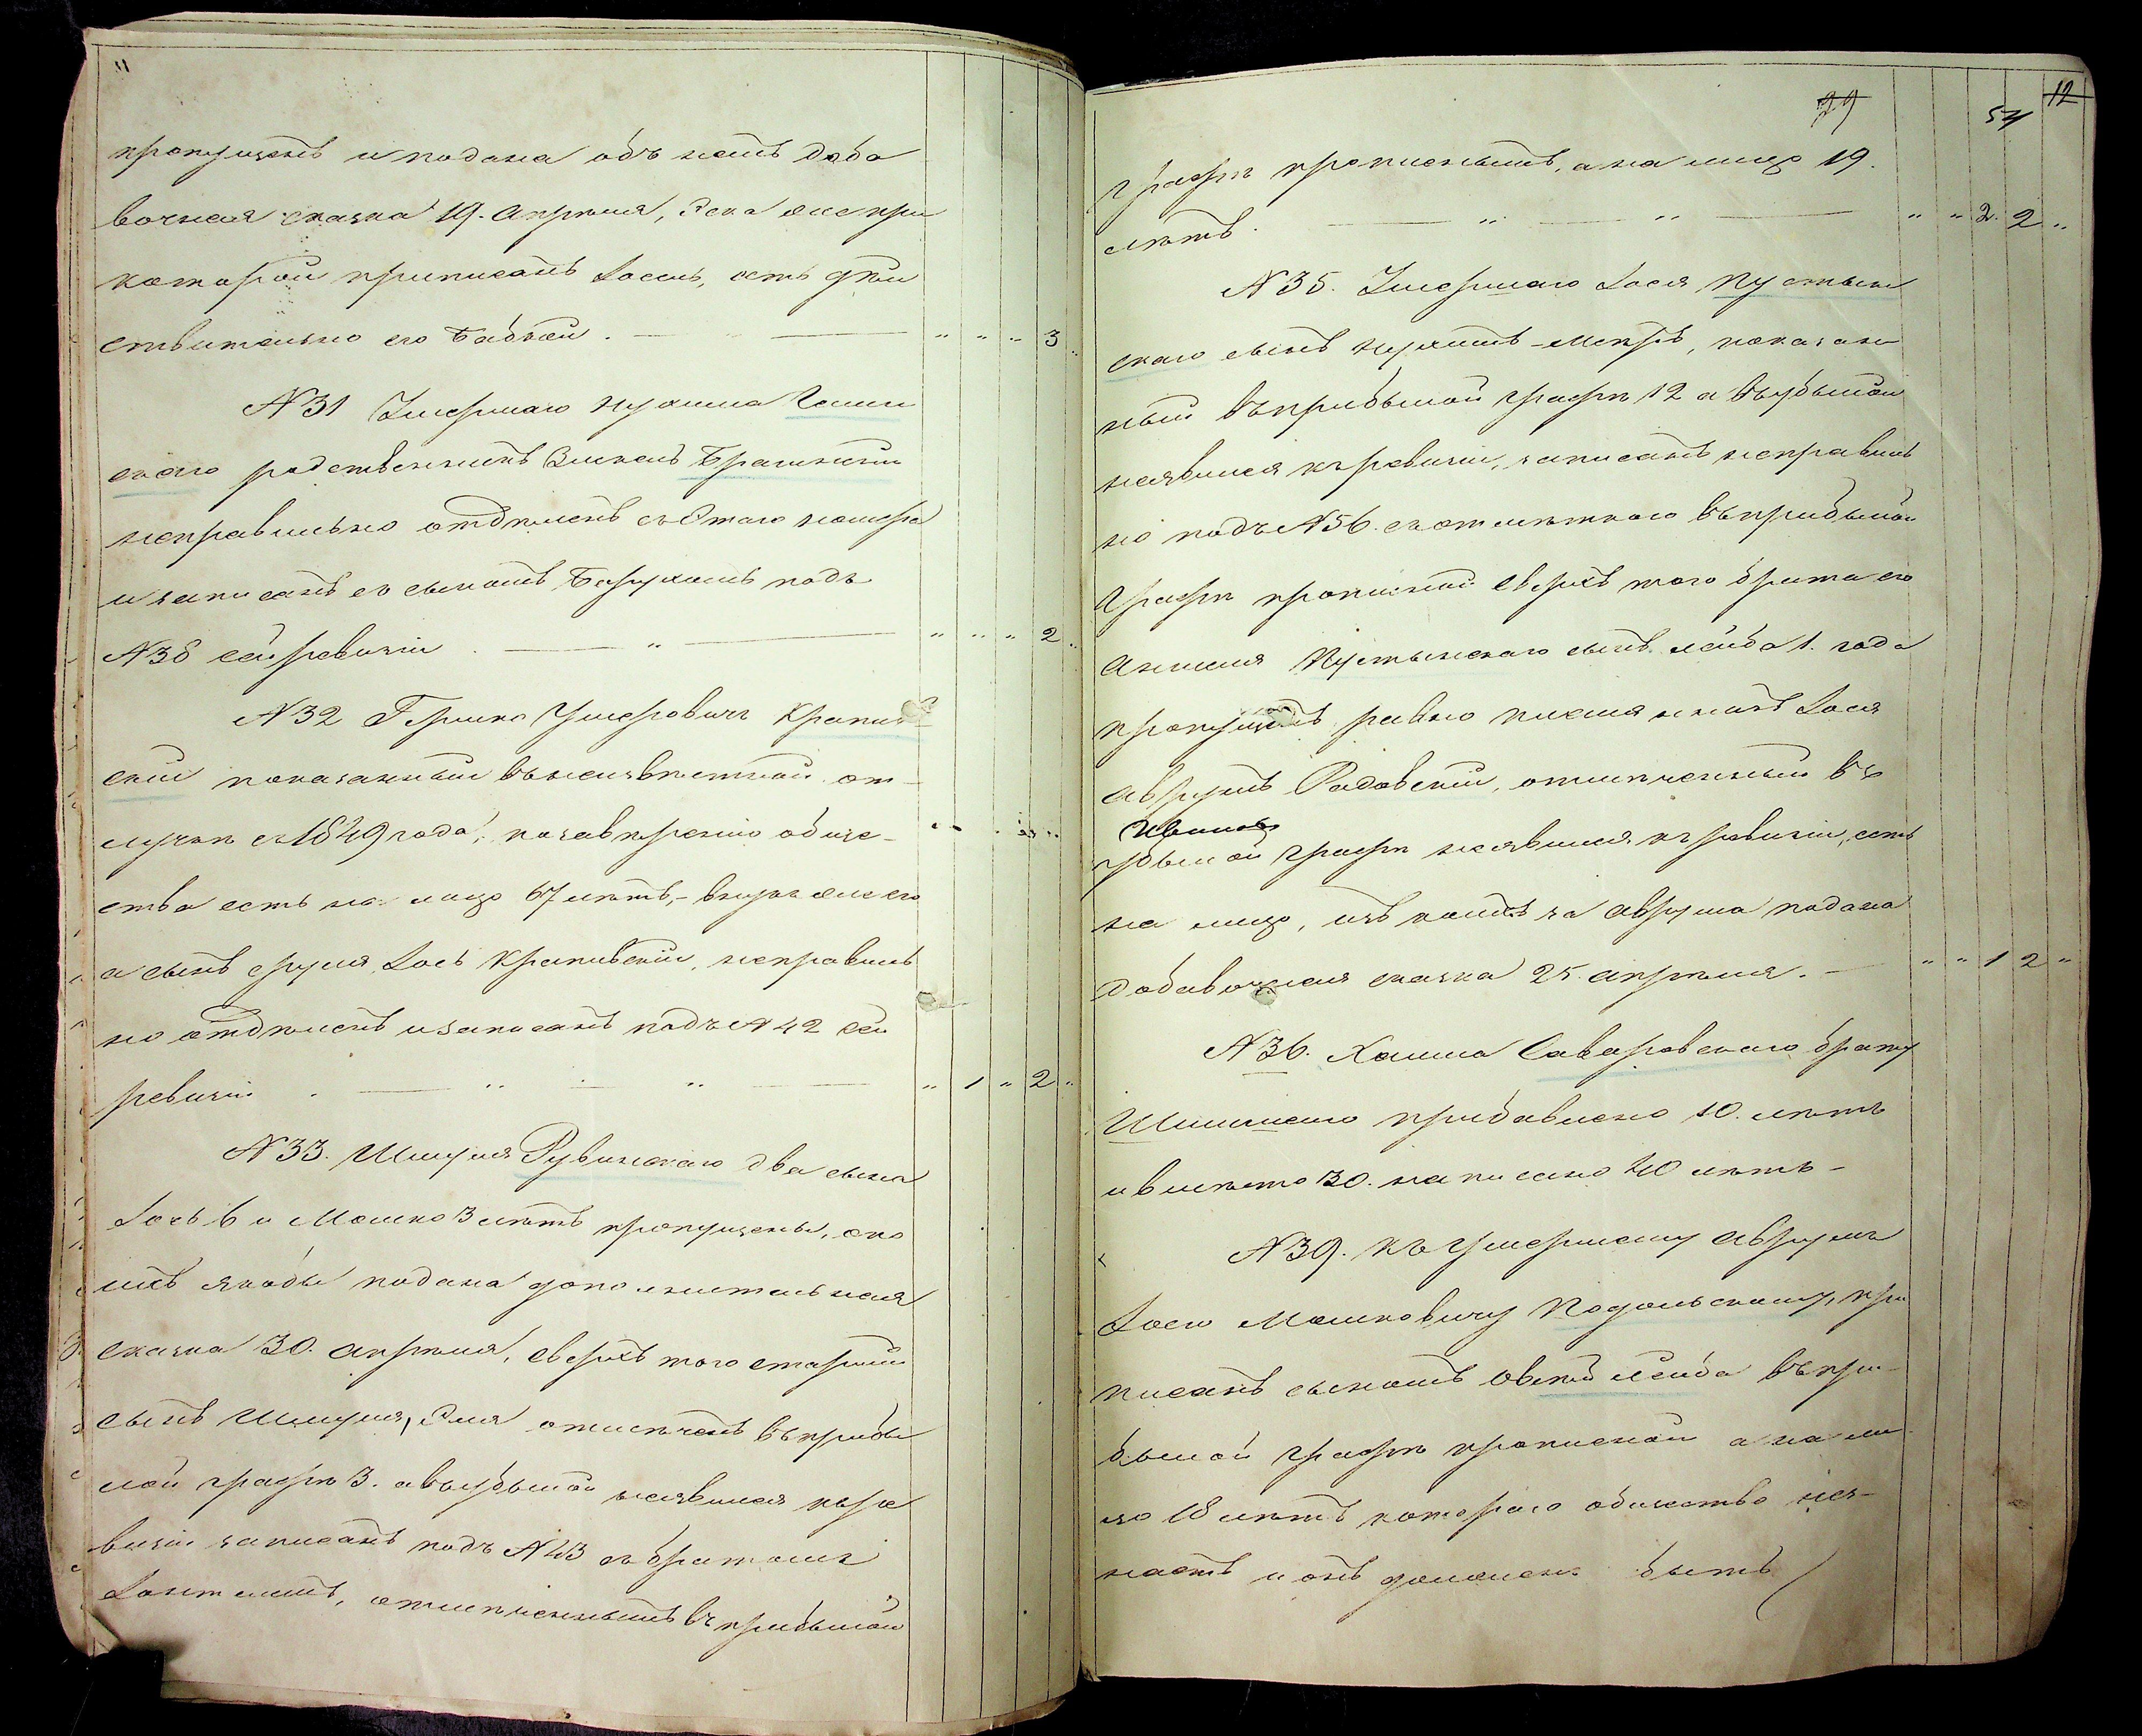 11
пропущенъ и подана объ немъ доба
вочная сказка 19. Апрѣля, Рска же при
которой приписанъ Іосель, есть дѣй
ствительно его бабкой. — " — " " " 3 "
№ 31 Умершаго Нухима Гомин
скаго родственникъ Зискель Брагинскій
неправильно отдѣленъ съ этаго номера
и записанъ съ сыномъ Борухомъ подъ
№ 38 сей ревизіи . — " — " " " 2 "
№ 32 Гершко Умеровичъ Крапив
скій показанный въ неизвѣстной от-
лучкѣ съ 1849 года, по завѣренію обще-
ства есть на лицо 67 лѣтъ, - внукъ же его
а сынъ Сруля, Іось Крапивскій, неправиль
но отдѣленъ и записанъ подъ № 42 сей
ревизіи . — " — " — " 1 " 2 "
№ 33. Шмуля Рувинскаго два сына
Іось 6 и Мошко 3 лѣтъ пропущены, о ко
ихъ якобы подана дополнительная
сказка 30. Апрѣля, сверхъ того старшій
сынъ Шмуля, Эля отмѣченъ въ прибы
лой графѣ 3. а въ убылой неявился къ ре
визіи записанъ подъ № 43 съ братомъ
отмѣченнымъ въ прибылой
29 54 12
графѣ прописнымъ, а на лицо 19.
лѣтъ. — " — " — " " 2. 2 "
№ 35. Умершаго Іося Пустын
скаго сынъ Нухимъ-Мееръ, показан
ный въ прибылой графѣ 12 а въ убылой
неявился къ ревизіи, записанъ неправиль
но подъ № 56. съ отмѣткою въ прибылой
графѣ прописной сверхъ того брата его
Аншеля Пустынскаго сынъ Лейба 1. года
пропущенъ равно племянникъ Іося
Аврумъ Радовскій, отмѣченный въ
убылой графѣ неявился къ ревизіи, есть
на лицо, изъ коихъ за Аврума подана
добавочная сказка 25. Апрѣля. — " " 1 2 "
№ 36. Хаима Саваровскаго брату
прибавлено 10. лѣтъ
и вмѣсто 30. написано 40 лѣтъ -
№ 39. къ умершему Авруму
Іосю Мошковичу Подольскому, при
писанъ сыномъ Овсей Лейба въ при-
былой графѣ прописной а на ли
цо 18 лѣтъ котораго общество нез-
наетъ и онъ долженъ быть